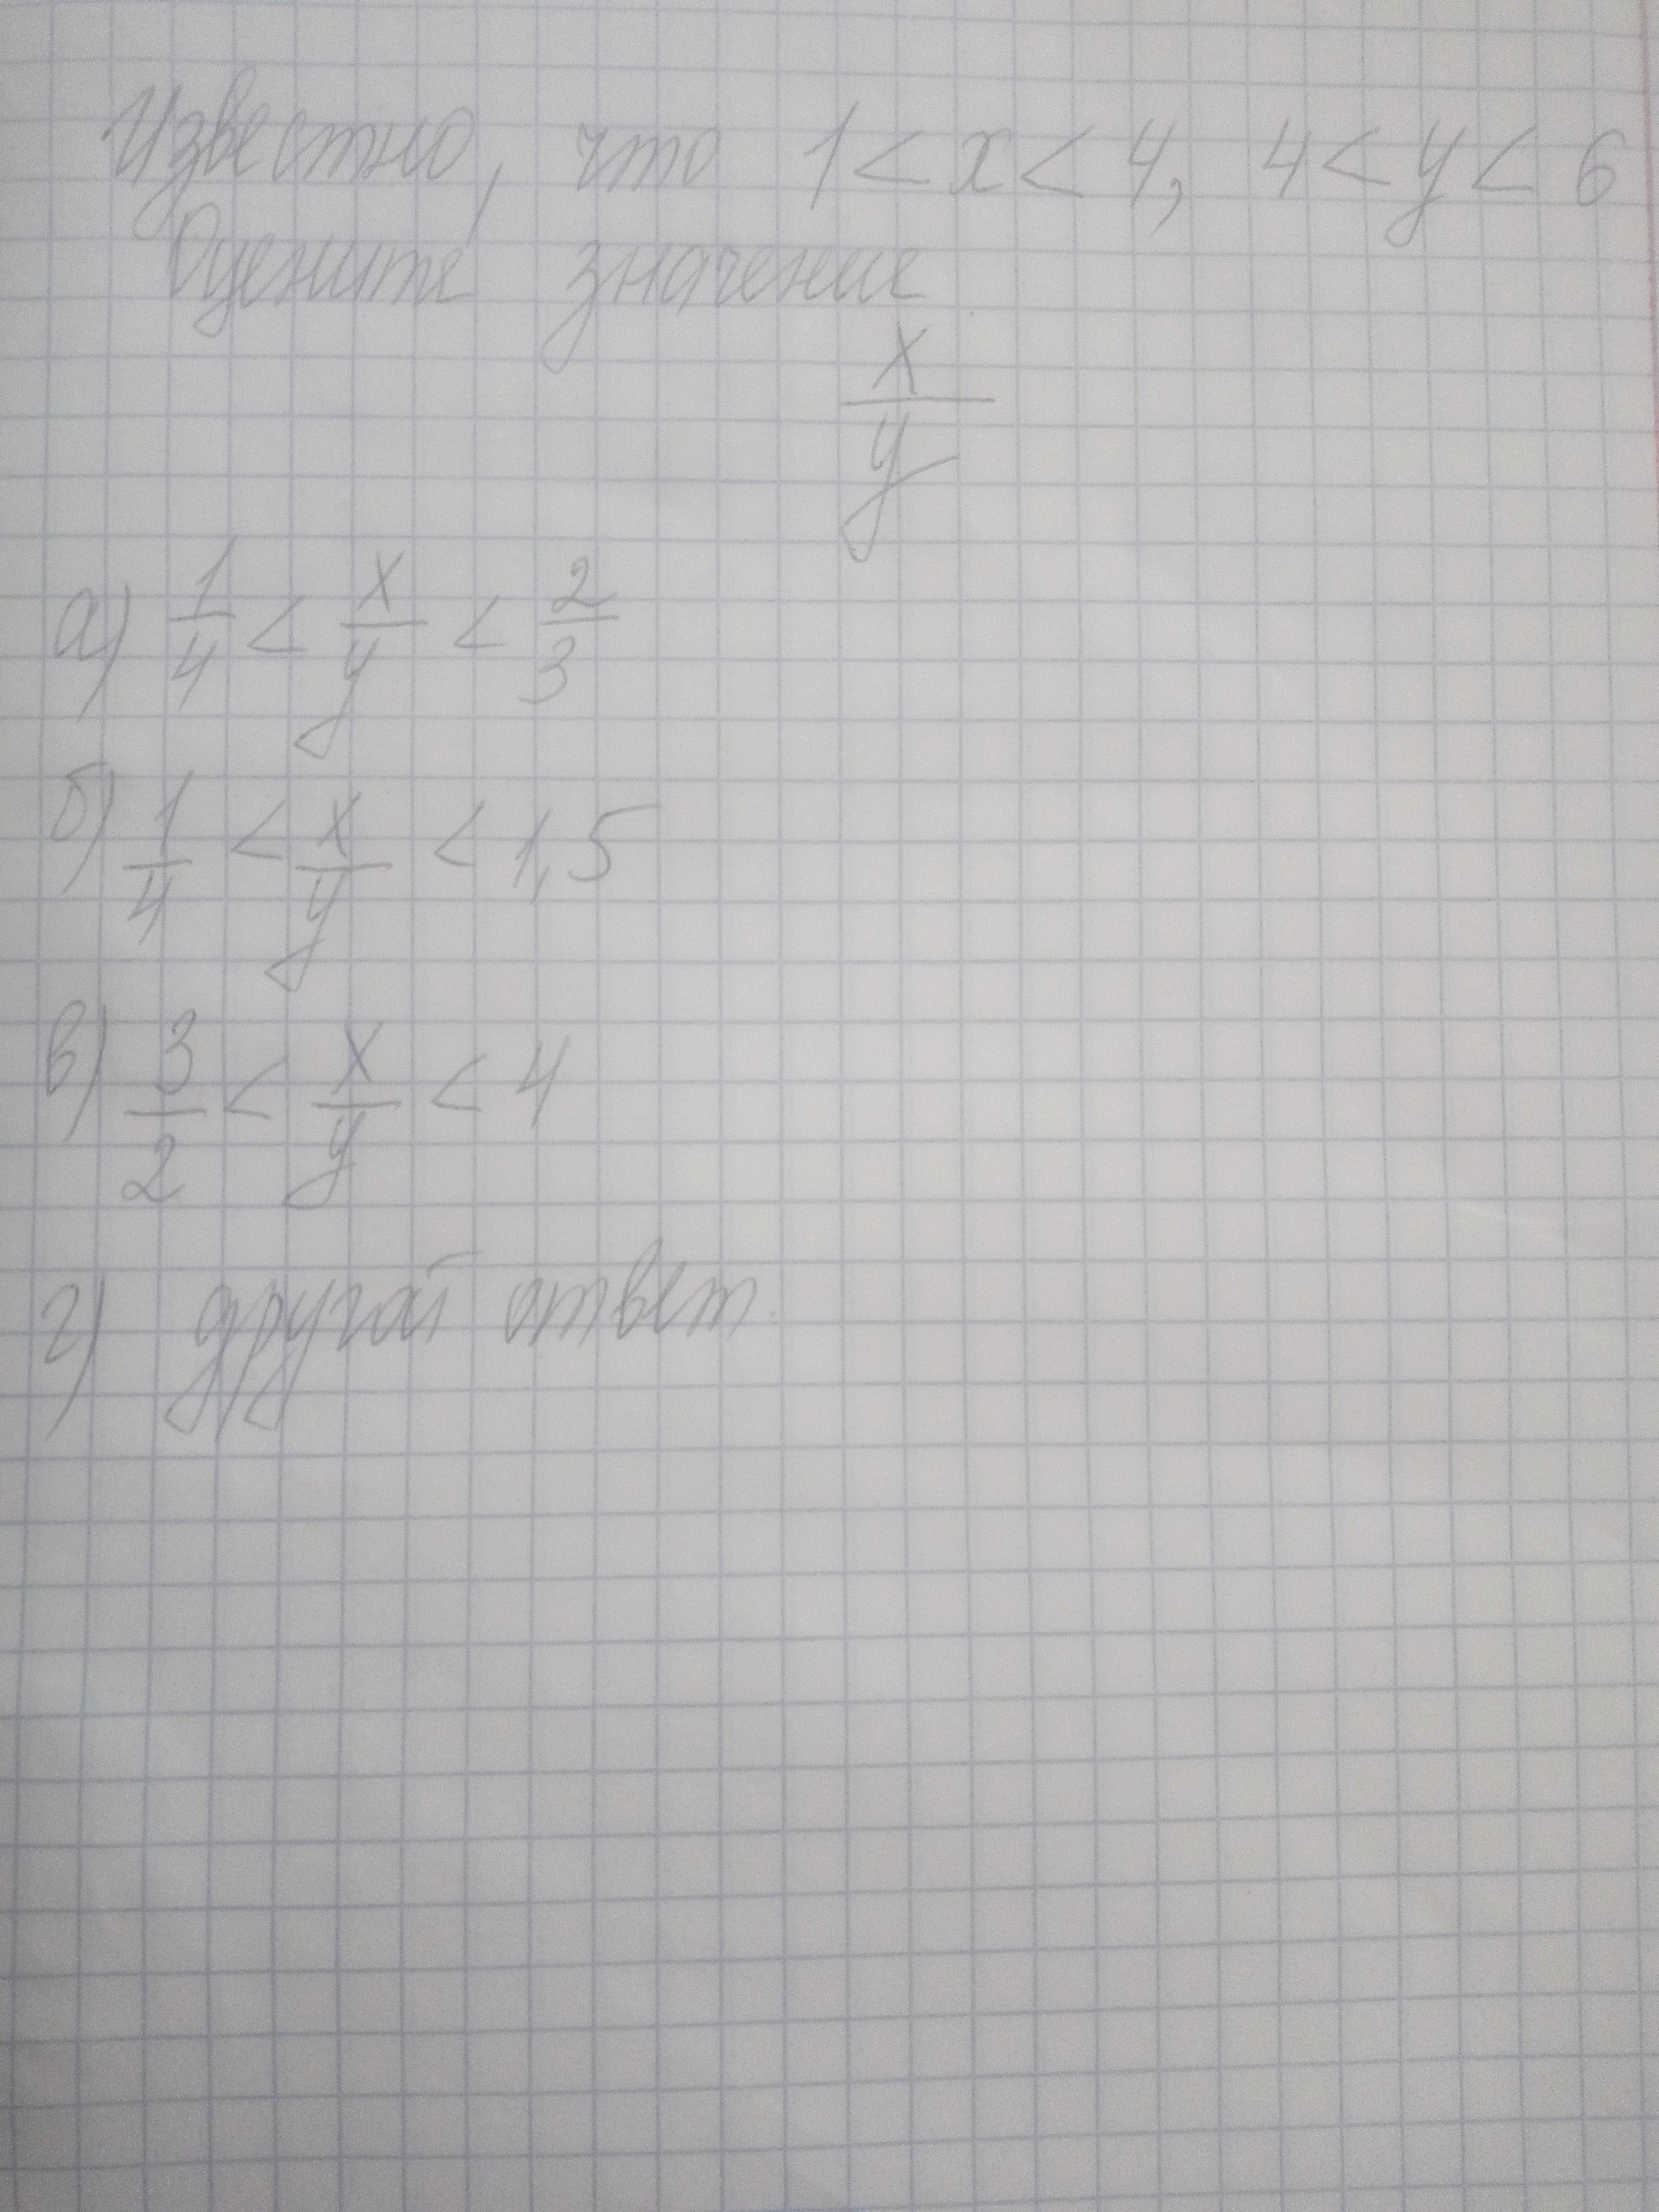 Известно, что 1 < x < 4, 4 < y < 6
Оцените значение
x/y
а) 1/4 < x/y < 2/3
б) 1/4 < x/y < 1,5
в) 3/2 < x/y < 4
г) другой ответ.